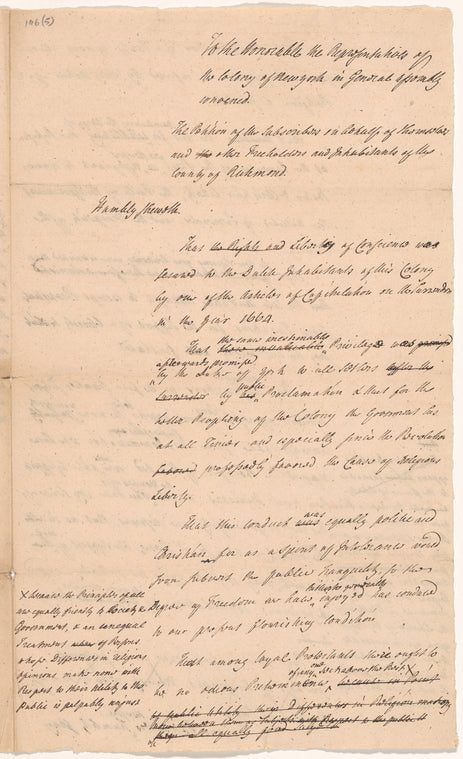 106(5)
To the Honorable the Representatives of
the Colony of New york in General Assembly
convened.
The Petition of the Subscribers on behalf of themselves
and the other Freeholders and Inhabitants of the
County of Richmond.
Humbly sheweth.
That the Rights and Liberty of Conscience was
secured to the Dutch Inhabitants of this Colony
by one of the Articles of Capitulation on the Surrender
in the Year 1664.
the same inestimable
That Priviledge was
afterwards promised
by the Duke of York to all Settlers after the
Surrender by Public Proclamation & that for the
better Peopling of the Colony the Government has
at all Times and especially since the Revolution
favored professedly favored the Cause of Religious
Liberty.
That this Conduct was equally politic and
Christian for as a Spirit of Intolerance would
soon subvert the public Tranquility so the
Degree of Freedom we have hitherto generally enjoyed has conduced
to our present flourishing Condition
That among loyal Protestants there ought to
be no odious Preheminence of any one Sect above the Rest X because in Point
of public Utility their Differences in Religion making
all equally good Subjects
X because the Principles of all
are equally friendly to Society &
Government, & an unequal
Treatment of Persons
whose Differences in religious
Opinions make none with
Respect to their Utility to the
Public is palpably unjust